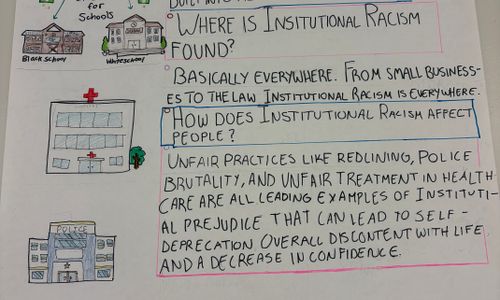 for
Schools
Black school
White school
WHERE IS INSITUTIONAL RACISM
FOUND?
BASICALLY EVERYWHERE. FROM SMALL BUSINESS-
ES TO THE LAW INSTITUTIONAL RACISM IS EVERYWHERE.
HOW DOES INSTITUTIONAL RACISM AFFECT
PEOPLE?
UNFAIR PRACTICES LIKE REDLINING, POLICE
BRUTALITY, AND UNFAIR TREATMENT IN HEALTH
CARE ARE ALL LEADING EXAMPLES OF INSTITUTI-
AL PREJUDICE THAT CAN LEAD TO SELF-
DEPRECATION. OVERALL DISCONTENT WITH LIFE
AND A DECREASE IN CONFIDENCE.
POLICE